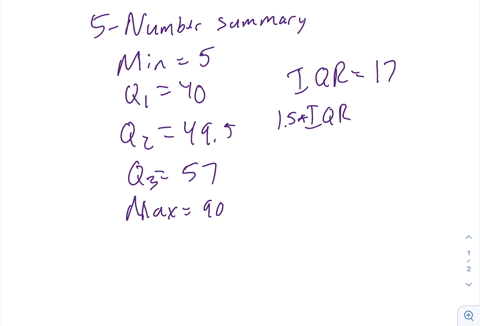 5-Number summary
Min = 5
Q1 = 40
Q2 = 49.5
Q3 = 57
Max = 90
IQR = 17
1.5*IQR
1
/
2